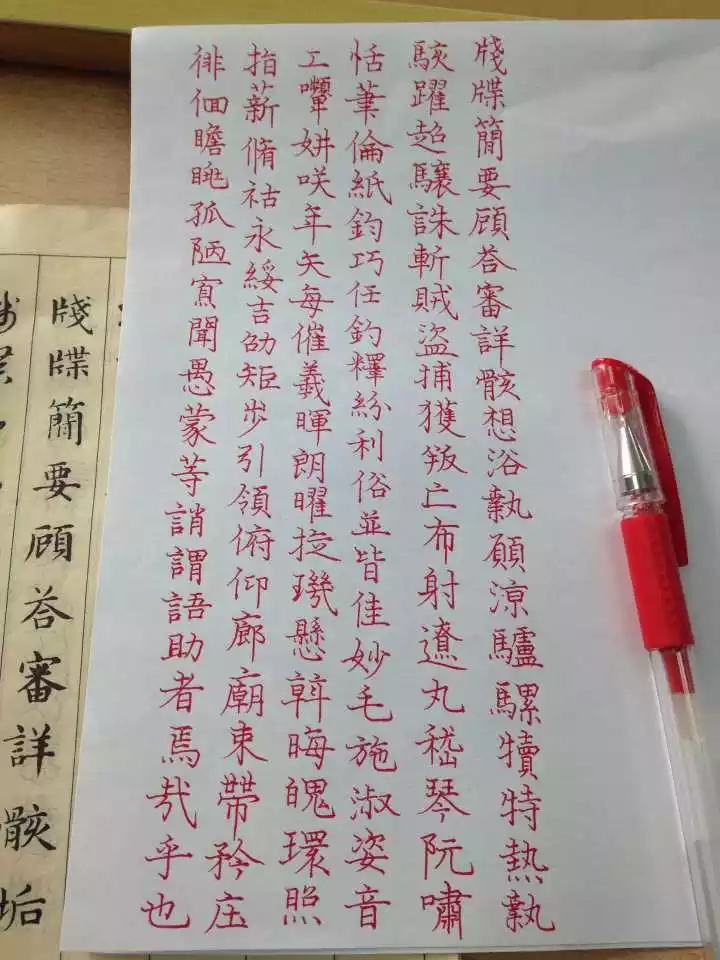 牋牒簡要顧荅審詳骸想浴執願涼驢騾犢特熱執
駭躍超驤誅斬賊盜捕獲叛亡布射遼丸嵇琴阮嘯
恬筆倫紙鈞巧任釣釋紛利俗並皆佳妙毛施淑姿音
工嚬妍咲年矢每催羲暉朗曜琁璣懸斡晦魄環照
指薪脩祜永綏吉劭矩步引領俯仰廊廟束帶矜庄
徘徊瞻眺孤陋寡聞愚蒙等誚謂語助者焉哉乎也
牋牒簡要顧荅審詳骸垢